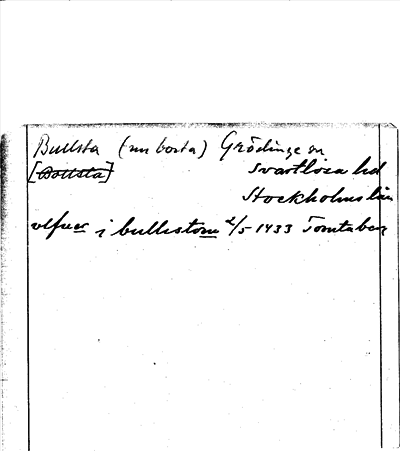 Bullsta (nu borta) Grödinge sn
[Bollsta] Svartlösa hd
Stockholms län
ulfuer i bullistom 2/5 1433 Tomtaberg